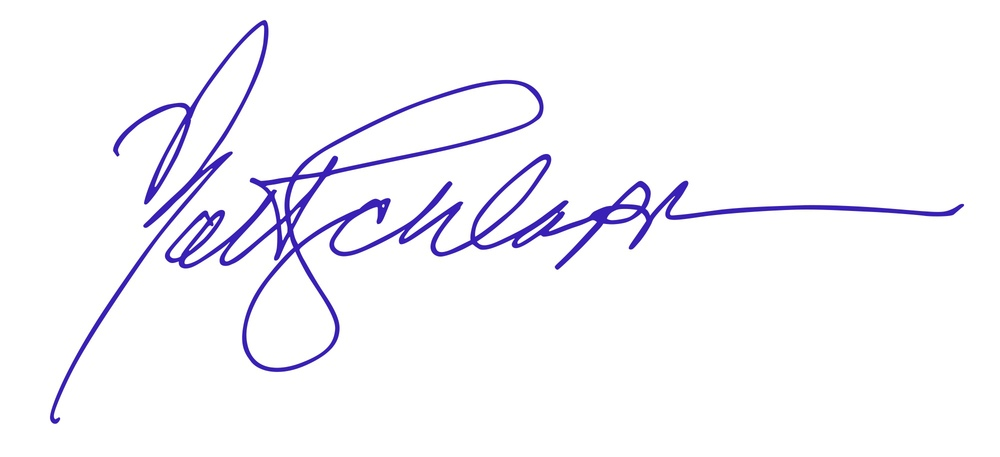 Matt Schlapp